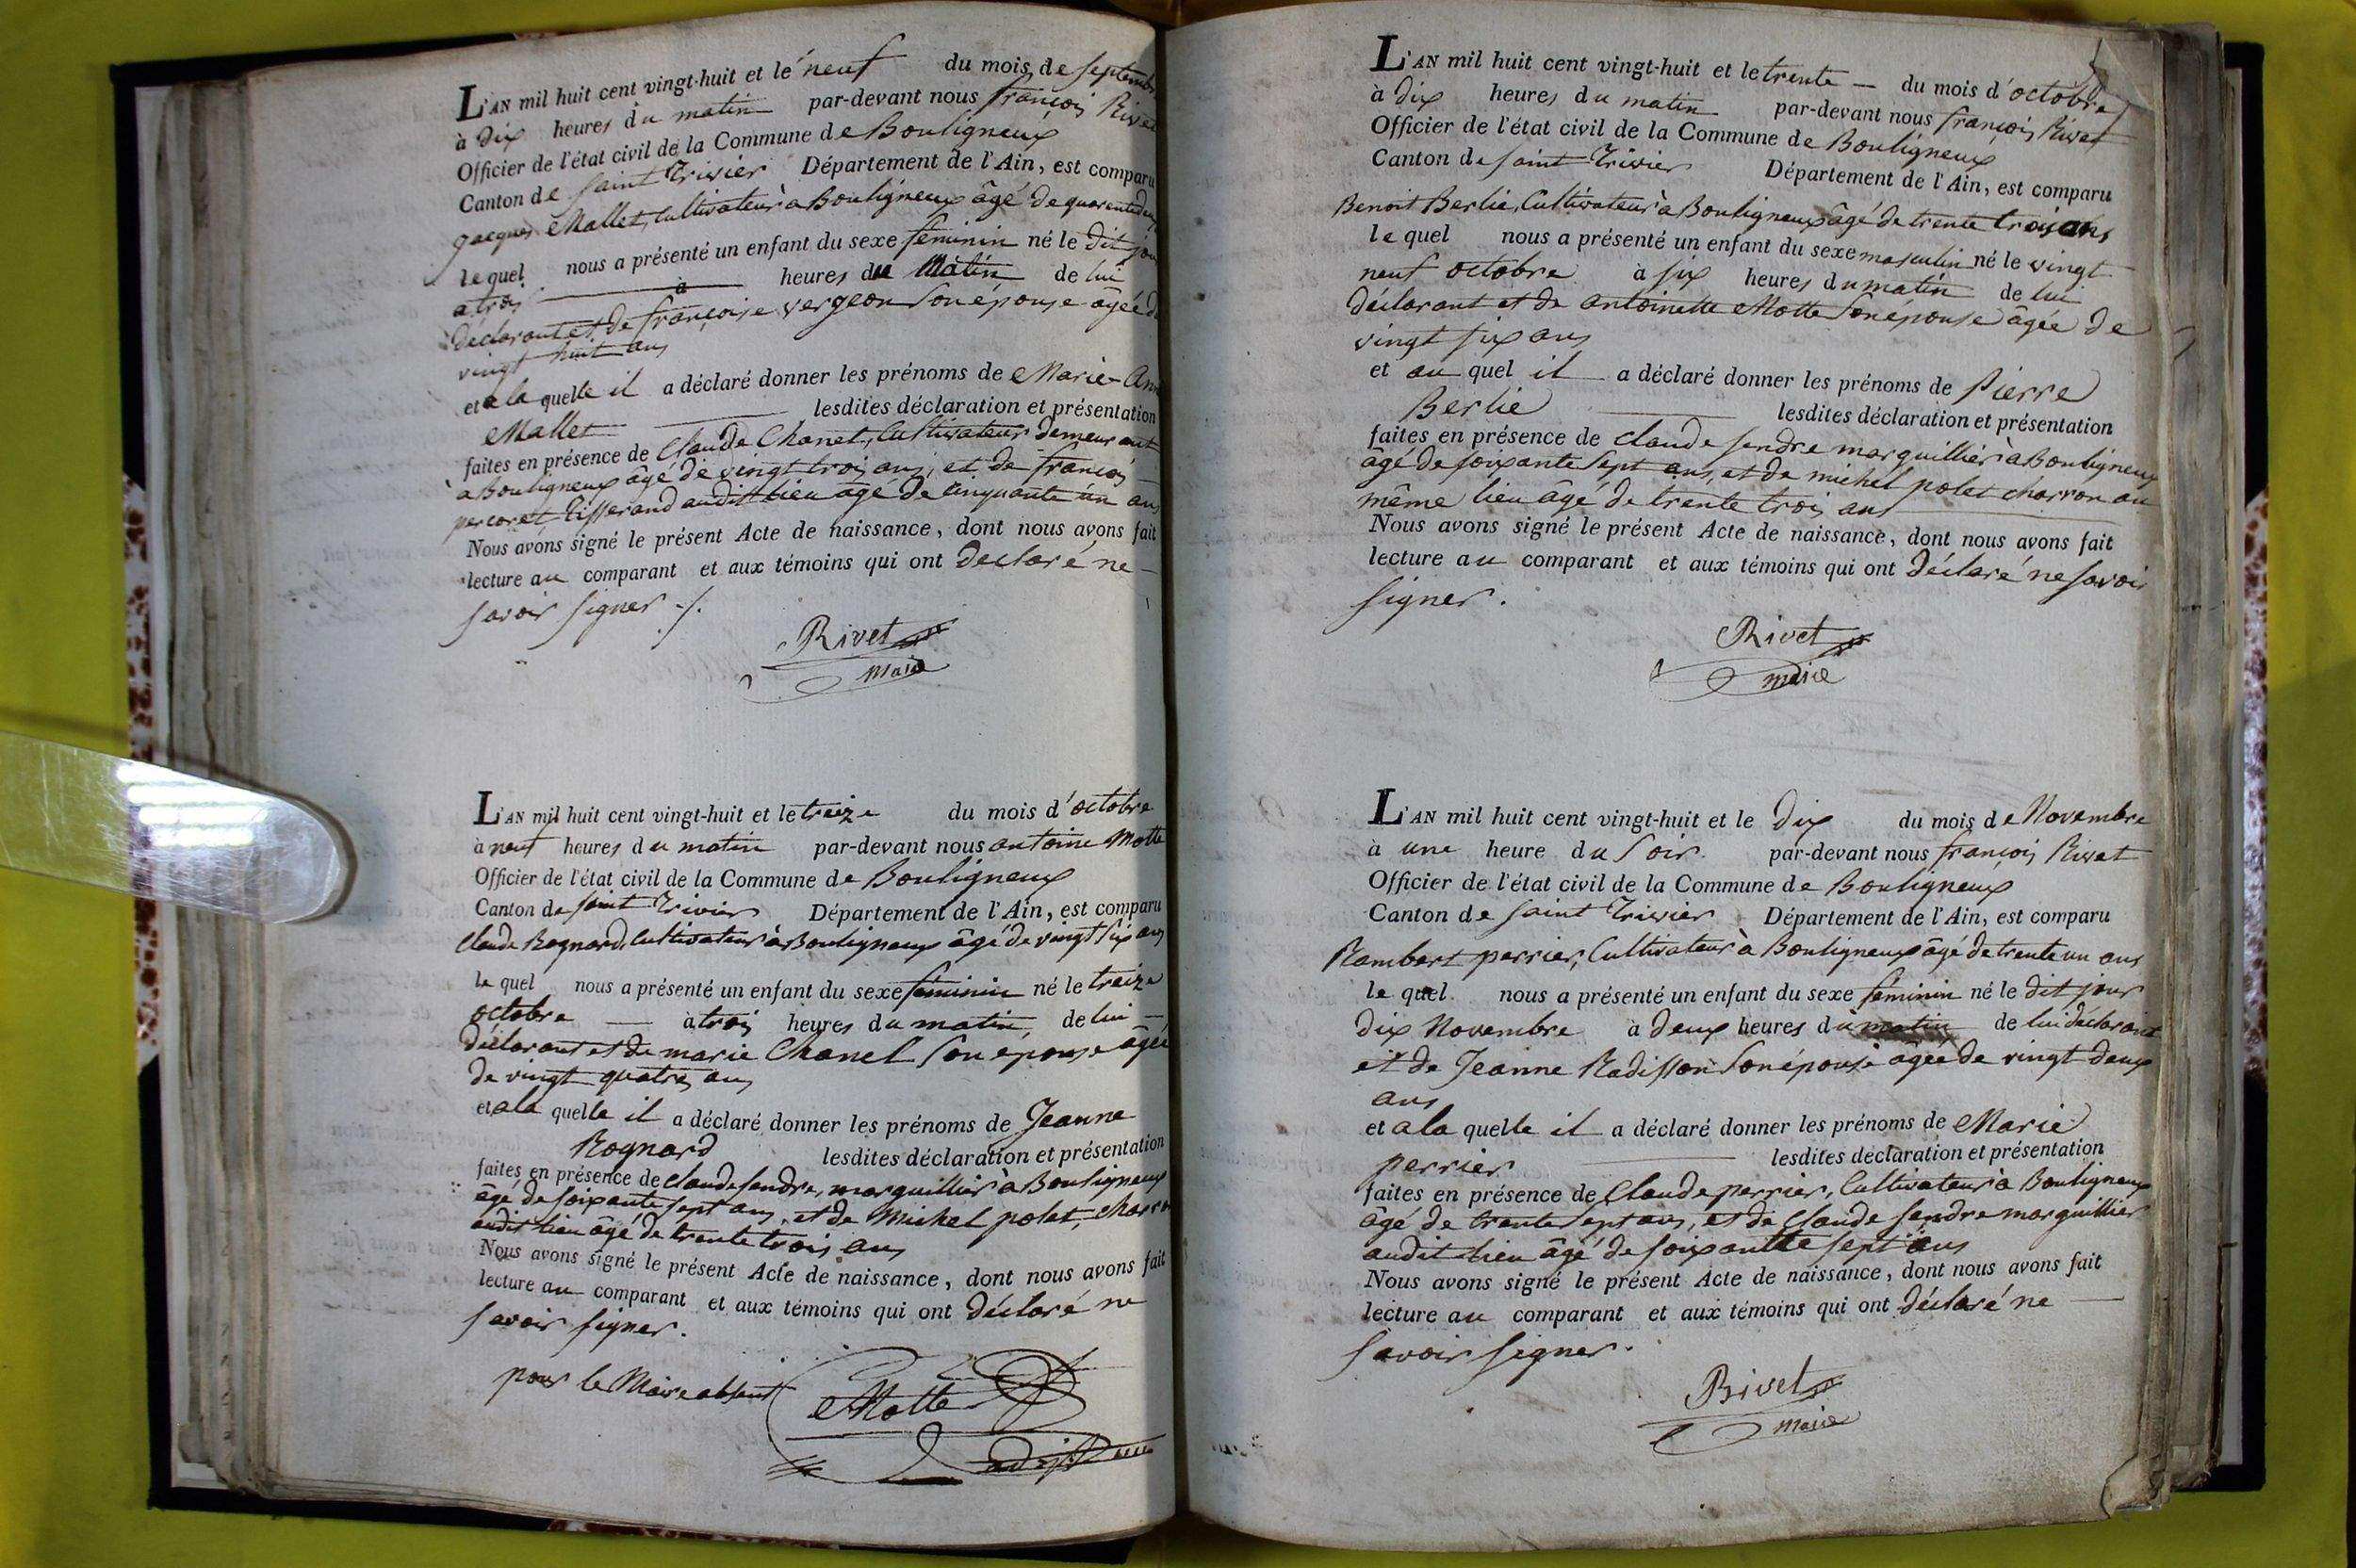 L'AN mil huit cent vingt-huit et le neuf du mois de septembre
à dix heures du matin par-devant nous françois Rivet
Officier de l'état civil de la Commune de Bouligneux
Canton de saint Trivier Département de l'Ain, est comparu
jacques Mallet, Cultivateur à Bouligneux âgé de quarante deux
le quel nous a présenté un enfant du sexe féminin né le dit jour
a trois à heures du Matin de lui
déclarant et de françoise vergeon son épouse âgée de
vingt huit ans
et a la quelle il a déclaré donner les prénoms de Marie-Ann
Mallet lesdites déclaration et présentation
faites en présence de Claude Chanel, Cultivateur demeurant
à Bouligneux âgé de vingt trois ans, et de françois
percoret Tisserand audit lieu âgé de cinquante un ans
Nous avons signé le présent Acte de naissance, dont nous avons fait
lecture au comparant et aux témoins qui ont déclaré ne
savoir signer ./.
Rivet
Maire
L'AN mil huit cent vingt-huit et le treize du mois d'octobre
à neuf heures du matin par-devant nous antoine Motte
Officier de l'état civil de la Commune de Bouligneux
Canton de saint Trivier Département de l'Ain, est comparu
Claude Rognard, Cultivateur à Bouligneux âgé de vingt six ans
le quel nous a présenté un enfant du sexe féminin né le treize
octobre à trois heures du matin de lui
déclarant et de marie Chanel son épouse âgée
de vingt quatre ans
et a la quelle il a déclaré donner les prénoms de Jeanne
Rognard lesdites déclaration et présentation
faites en présence de claude sendre, marguillier à Bouligneux
âgé de soixante sept ans, et de Michel polet, charron
audit lieu âgé de trente trois ans
Nous avons signé le présent Acte de naissance, dont nous avons fait
lecture au comparant et aux témoins qui ont déclaré ne
savoir signer.
pour le Maire absent
Motte
adjoint
L'AN mil huit cent vingt-huit et le trente du mois d'octobre
à dix heures du matin par-devant nous françois Rivet
Officier de l'état civil de la Commune de Bouligneux
Canton de saint Trivier Département de l'Ain, est comparu
Benoit Berlie, Cultivateur à Bouligneux âgé de trente trois ans
le quel nous a présenté un enfant du sexe masculin né le vingt
neuf octobre à six heures du matin de lui
déclarant et de antoinette Motte son épouse âgée de
vingt six ans
et au quel il a déclaré donner les prénoms de Pierre
Berlie lesdites déclaration et présentation
faites en présence de claude sendre marguillier à Bouligneux
âgé de soixante sept ans, et de michel polet charron au
même lieu âgé de trente trois ans
Nous avons signé le présent Acte de naissance, dont nous avons fait
lecture au comparant et aux témoins qui ont déclaré ne savoir
signer.
Rivet
maire
L'AN mil huit cent vingt-huit et le dix du mois de Novembre
à une heure du soir par-devant nous françois Rivet
Officier de l'état civil de la Commune de Bouligneux
Canton de saint Trivier Département de l'Ain, est comparu
Rambert perrier, Cultivateur à Bouligneux âgé de trente un ans
le quel nous a présenté un enfant du sexe féminin né le dit jour
dix Novembre à deux heures du matin de lui déclarant
et de Jeanne Radisson son épouse âgée de vingt deux
ans
et a la quelle il a déclaré donner les prénoms de Marie
perrier lesdites déclaration et présentation
faites en présence de Claude perrier, Cultivateur à Bouligneux
âgé de trente sept ans, et de Claude sendre marguillier
audit lieu âgé de soixante sept ans
Nous avons signé le présent Acte de naissance, dont nous avons fait
lecture au comparant et aux témoins qui ont déclaré ne
savoir signer.
Rivet
Maire